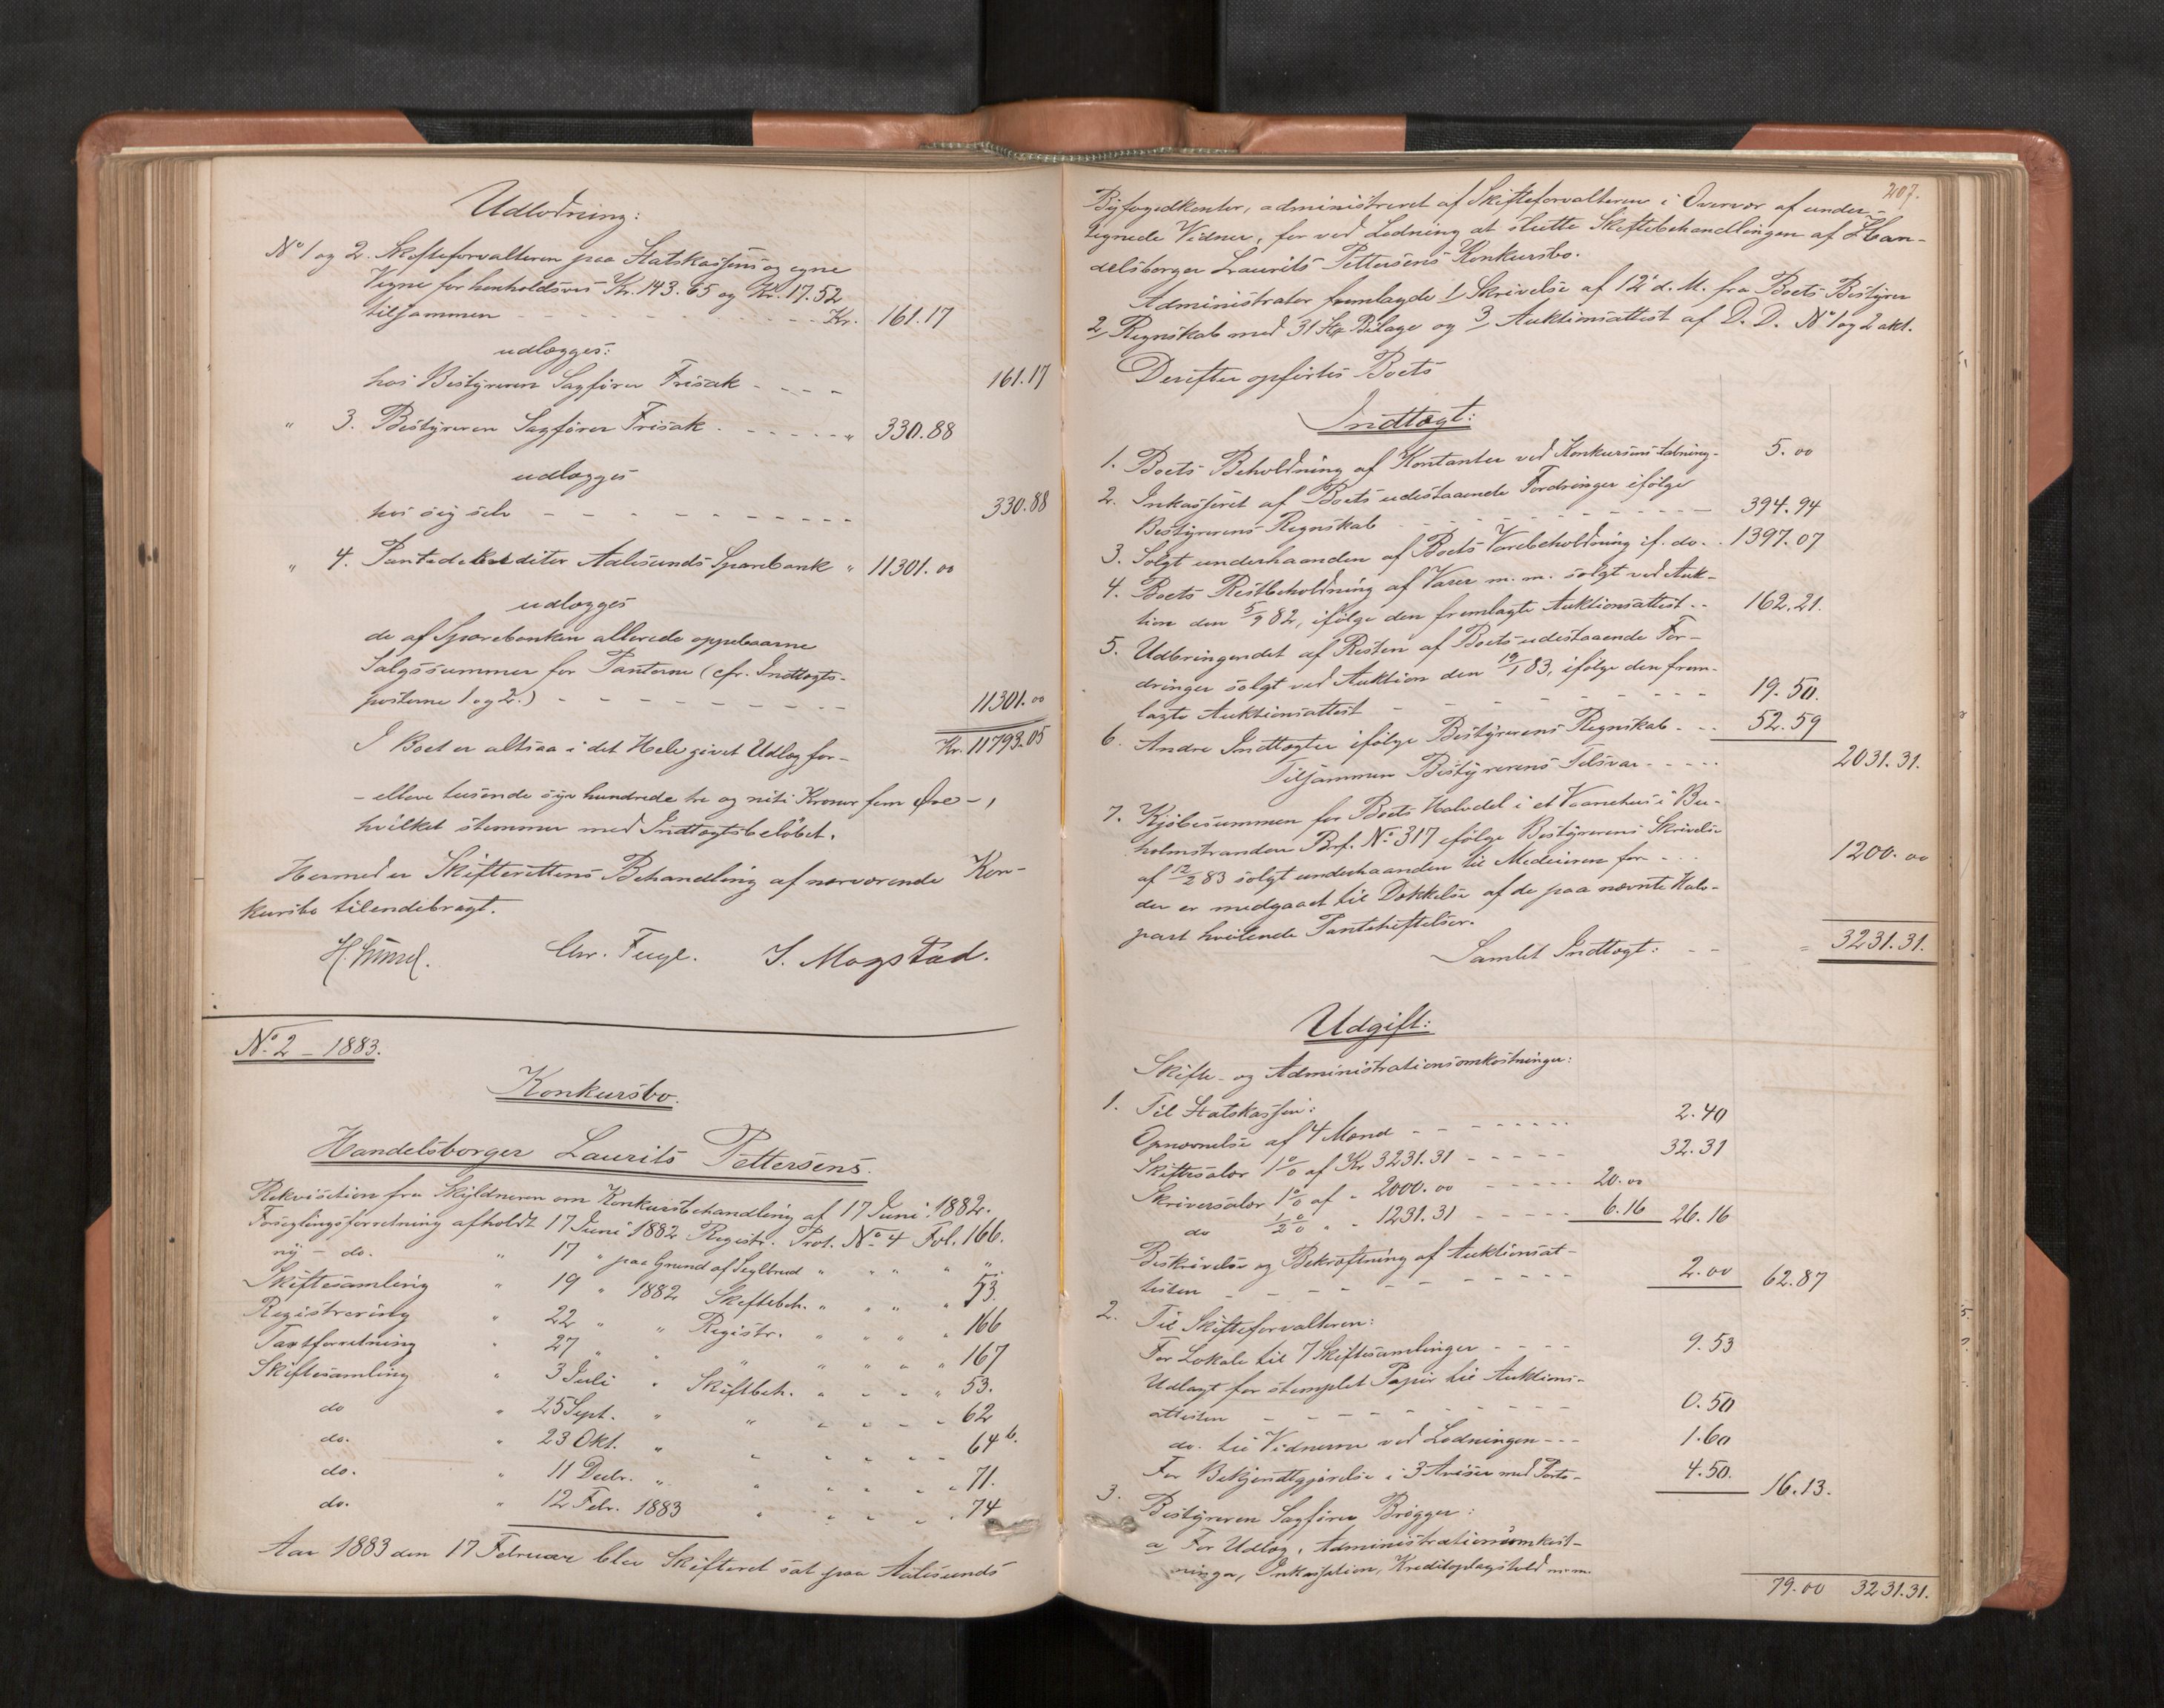 Udlodning:
No 1 og 2. Skifteforvalteren paa Statskassens og egne
Vegne for henholdsvis Kr. 143.65 og Kr. 17.52
tilsammen - - - Kr. 161.17
udlægges:
hos Bestyreren Sagfører Frisak - - - - 161.17
" 3. Bestyreren Sagfører Frisak - - - - " 330.88
udlægges
hos sig selv - - - - - 330.88
" 4. Pantekreditor Aalesunds Sparebank " 11301.00
udlægges
de af Sparebanken allerede oppebaarne
Salgssummer for Panterne (cfr. Indtægts-
posterne 1 og 2.) - - - - 11301.00
I Boet er altsaa i det Hele givet Udlæg for- Kr. 11793.05
- elleve tusende syv hundrede tre og niti Kroner fem Øre -,
hvilket stemmer med Indtægtsbeløbet.
Hermed er Skifterettens Behandling af nærværende Kon-
kursbo tilendebragt.
Chr. Fugl. J. Mogstad.
No. 2 - 1883.
Konkursbo.
Handelsborger Laurits Pettersens.
Rekvisition fra Skyldneren om Konkursbehandling af 17 Juni 1882.
Forseglingsforretning afholdt 17 Juni 1882 Registr. Prot. No. 4 Fol. 166.
ny - do. " 17 " paa Grund af Seglbrud " " " " "
Skiftesamling " 19 " 1882 Skiftebeh. " " " " 53.
Registrering " 22 " " Registr. " " " " 166
Taxtforretning " 27 " " " " " " " 167
Skiftesamling " 3 Juli " Skiftbeh. " " " " 53.
do " 25 Sept. " " " " " " 62
do. " 23 Okt. " " " " " " 64 b.
do. " 11 Decbr. " " " " " " 71.
do. " 12 Febr. 1883 " " " " " 74
Aar 1883 den 17 Februar blev Skifteret sat paa Aalesunds
207.
Byfogedkontor, administreret af Skifteforvalteren i Overvær af under-
tegnede Vidner, for ved Lodning at slutte Skiftebehandlingen af Han-
delsborger Laurits Pettersens Konkursbo.
Administrator fremlagde 1 Skrivelse af 12 d. M. fra Boets Bestyrer
2 Regnskab med 31 Stk Bilage og 3 Auktionsattest af D. D. No 1 og 2 akt.
Derefter opførtes Boets
Indtægt:
1. Boets Beholdning af Kontanter ved Konkursens Aabning- 5.00
2. Inkasseret af Boets udestaaende Fordringer ifølge
Bestyrerens Regnskab - - - - 394.94
3. Solgt underhaanden af Boets Varebeholdning if. do. . 1397.07
4. Boets Restbeholdning af Varer m. m. solgt ved Auk-
tion den 5/9 82, ifølge den fremlagte Auktionsattest - - 162.21.
5. Udbringendet af Resten af Boets udestaaende For-
dringer solgt ved Auktion den 19/1 83, ifølge den frem-
lagte Auktionsattest - - - - 19.50.
6. Andre Indtægter ifølge Bestyrerens Regnskab - - - 52.59
Tilsammen Bestyrerens Tilsvar - - - - 2031.31.
7. Kjøbesummen for Boets Halvdel i et Vaanehus i Bu-
holmstranden Brf. No. 317 ifølge Bestyrerens Skrivelse
af 12/2 83 solgt underhaanden til Medeieren for - - - 1200.00
der er medgaaet til Dækkelse af de paa nævnte Halv-
part hvilende Panteheftelser.
Samlet Indtægt: - - = 3231.31.
Udgift:
Skifte- og Administrationsomkostninger:
1. Til Statskassen:
Opnævnelse af 4 Mænd - - - - 2.40
Skiftesalær 1 % af Kr 3231.31 - - - - 32.31
Skriversalær 1 % af " 2000.00 - - - - 20.00
do 1/2 % " " 1231.31 - - - - 6.16 26.16
Beskrivelse og Bekræftning af Auktionsat-
testen - - - - 2.00 62.87
2. Til Skifteforvalteren:
For Lokale til 7 Skiftesamlinger - - - - 9.53
Udlagt for stemplet Papir til Auktions-
attesten - - - - 0.50
do. til Vidnerne ved Lodningen - - - 1.60
For Bekjendtgjørelse i 3 Aviser med Porto - 4.50. 16.13.
3. Bestyreren Sagfører Brøgger:
a For Udlæg, Administrationsomkost-
ninger, Inkassation, Kreditoplagshold m. m.
79.00 3231.31.